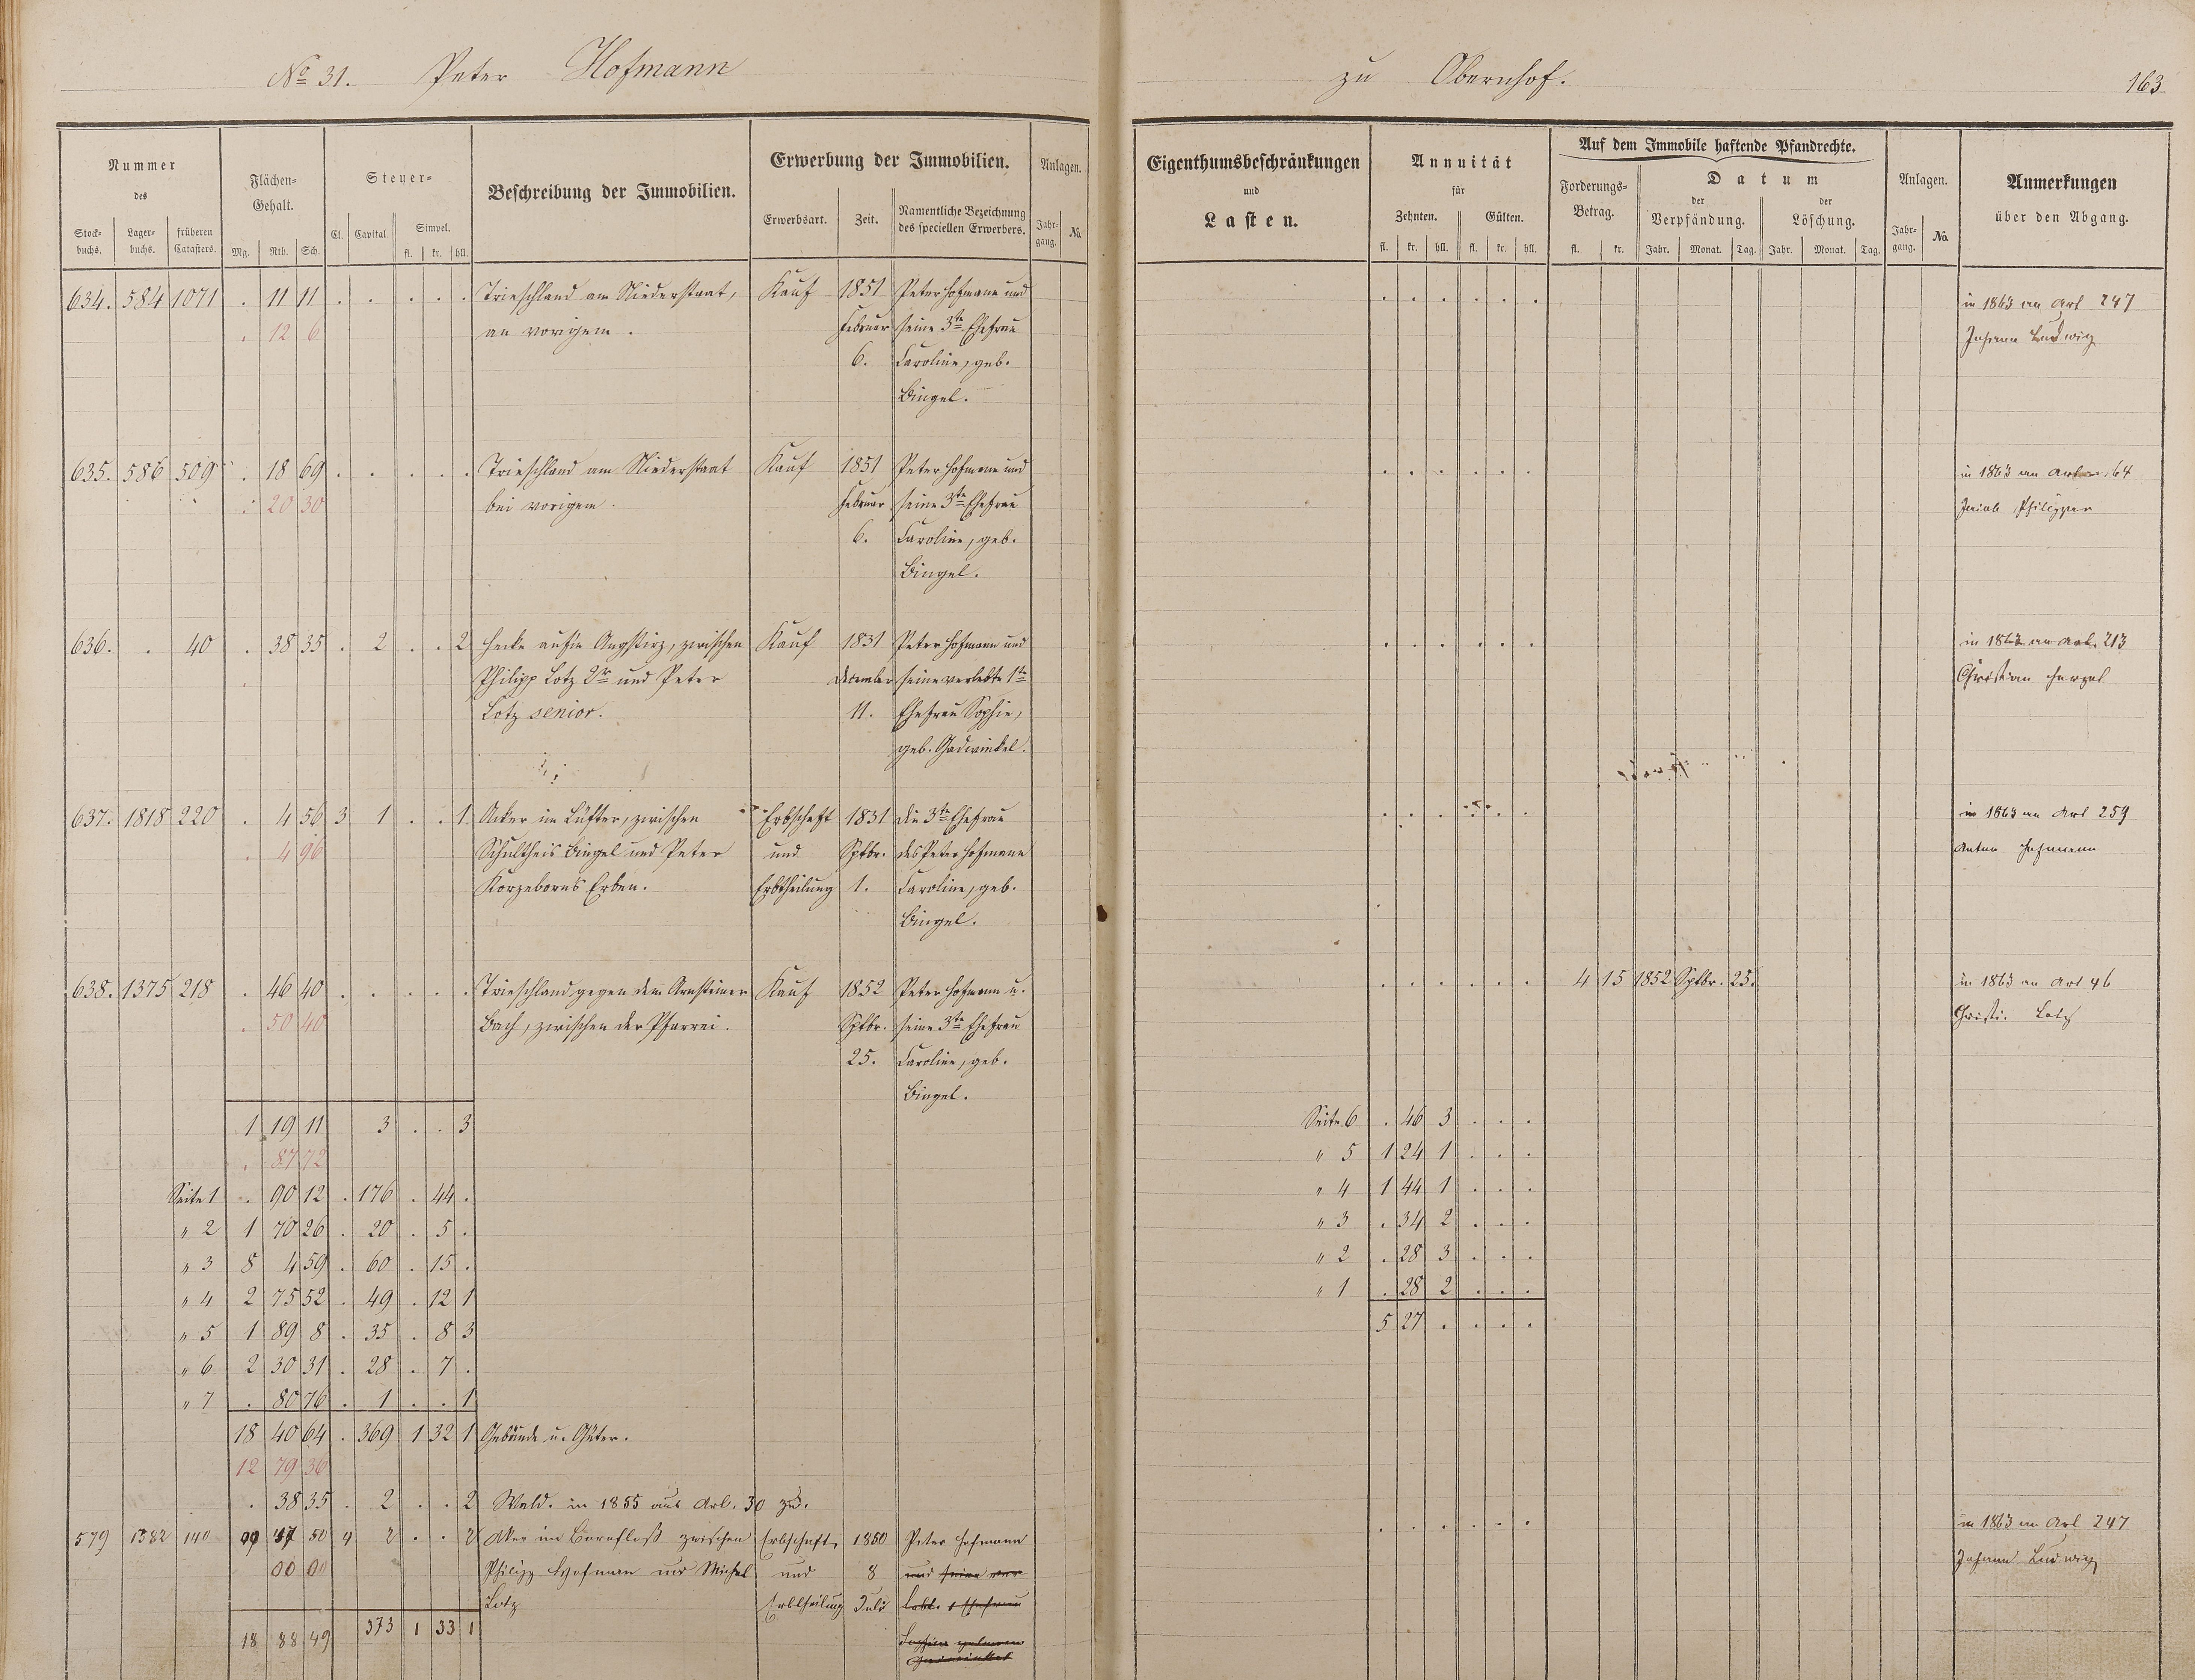 No 31. Peter Hofmann zu Obernhof. 163
Nummer
des
Stock-
buchs.
Lager-
buchs.
früheren
Catasters.
Flächen-
Gehalt.
Mg. Rth. Sch.
Steuer-
Cl. Capital.
Simpel.
fl. kr. hll.
Beschreibung der Immobilien.
Erwerbung der Immobilien.
Erwerbsart. Zeit.
Namentliche Bezeichnung
des speciellen Erwerbers.
Anlagen.
Jahr-
gang.
No.
Eigenthumsbeschränkungen
und
Lasten.
Annuität
für
Zehnten. Gülten.
fl. kr. hll. fl. kr. hll.
Auf dem Immobile haftende Pfandrechte.
Forderungs-
Betrag.
fl. kr.
Datum
der
Verpfändung.
der
Löschung.
Jahr. Monat. Tag. Jahr. Monat. Tag.
Anlagen.
Jahr-
gang.
No.
Anmerkungen
über den Abgang.
634. 584 1071 . 11 11 . . . . . Trieschland am Niederstaat, Kauf 1851 Peter Hofmann und . . . . . . in 1863 an Art 247
. 12 6 an vorigem. Februar seine 3te Ehefrau Johann Ludwig
6. Caroline, geb.
Bingel.
635. 586 509 . 18 69 . . . . . Trieschland am Niederstaat Kauf 1851 Peter Hofmann und . . . . . . in 1863 an Art 64
. 20 30 bei vorigem. Februar seine 3te Ehefrau Jacob Philipper
6. Caroline, geb.
Bingel.
636. . 40 . 38 35 . 2 . . 2 Hecke auf'm Angstirz, zwischen Kauf 1831 Peter Hofmann und . . . . . . in 1863 an Art. 213
Philipp Lotz 2r und Peter December seine verlebte 1te Christian
Lotz senior. 11. Ehefrau Sophie,
geb. Gadwinkel.
637. 1818 220 . 4 56 3 1 . . 1 Acker im Lüfter, zwischen Erbschaft 1831 die 3te Ehefrau . . . . . . in 1863 an Art 259
. 4 96 Schultheis Bingel und Peter und Sptbr. des Peter Hofmann Anton Hofmann
Korzeborns Erben. Erbtheilung 1. Caroline, geb.
Bingel.
638. 1375 218 . 46 40 . . . . . Trieschland gegen dem Arnsteiner Kauf 1852 Peter Hofmann u. . . . . . . 4 15 1852 Sptbr. 25. in 1863 an Art 46
. 50 40 Bach, zwischen der Pfarrei. Sptbr. seine 3te Ehefrau Christi. Lotz
25. Caroline, geb.
Bingel.
1 19 11 3 . . 3 Seite 6 . 46 3 . . .
. 87 72 " 5 1 24 1 . . .
Seite 1 . 90 12 . 176 . 44 . " 4 1 44 1 . . .
" 2 1 70 26 . 20 . 5 . " 3 . 34 2 . . .
" 3 8 4 59 . 60 . 15 . " 2 . 28 3 . . .
" 4 2 75 52 . 49 . 12 1 " 1 . 28 2 . . .
" 5 1 89 8 . 35 . 8 3 5 27 . . . .
" 6 2 30 31 . 28 . 7 .
" 7 . 80 76 . 1 . . 1
18 40 64 . 369 1 32 1 Gebäude u. Güter.
12 79 36
. 38 35 . 2 . . 2 Wald. in 1855 aus Art. 30 zu.
579 1382 140 47 50 4 2 . . 2 Aker im Bornfloß zwischen Erbschaft 1850 Peter Hofmann . . . . . . in 1863 an Art 247
00 00 Philipp Hofmann und Michel und 8 und seine ver Johann Ludwig
Lotz Erbtheilung Juli lebt. 1 Ehefrau
18 88 49 373 1 33 1 Sophia geborene
Gadwinkel